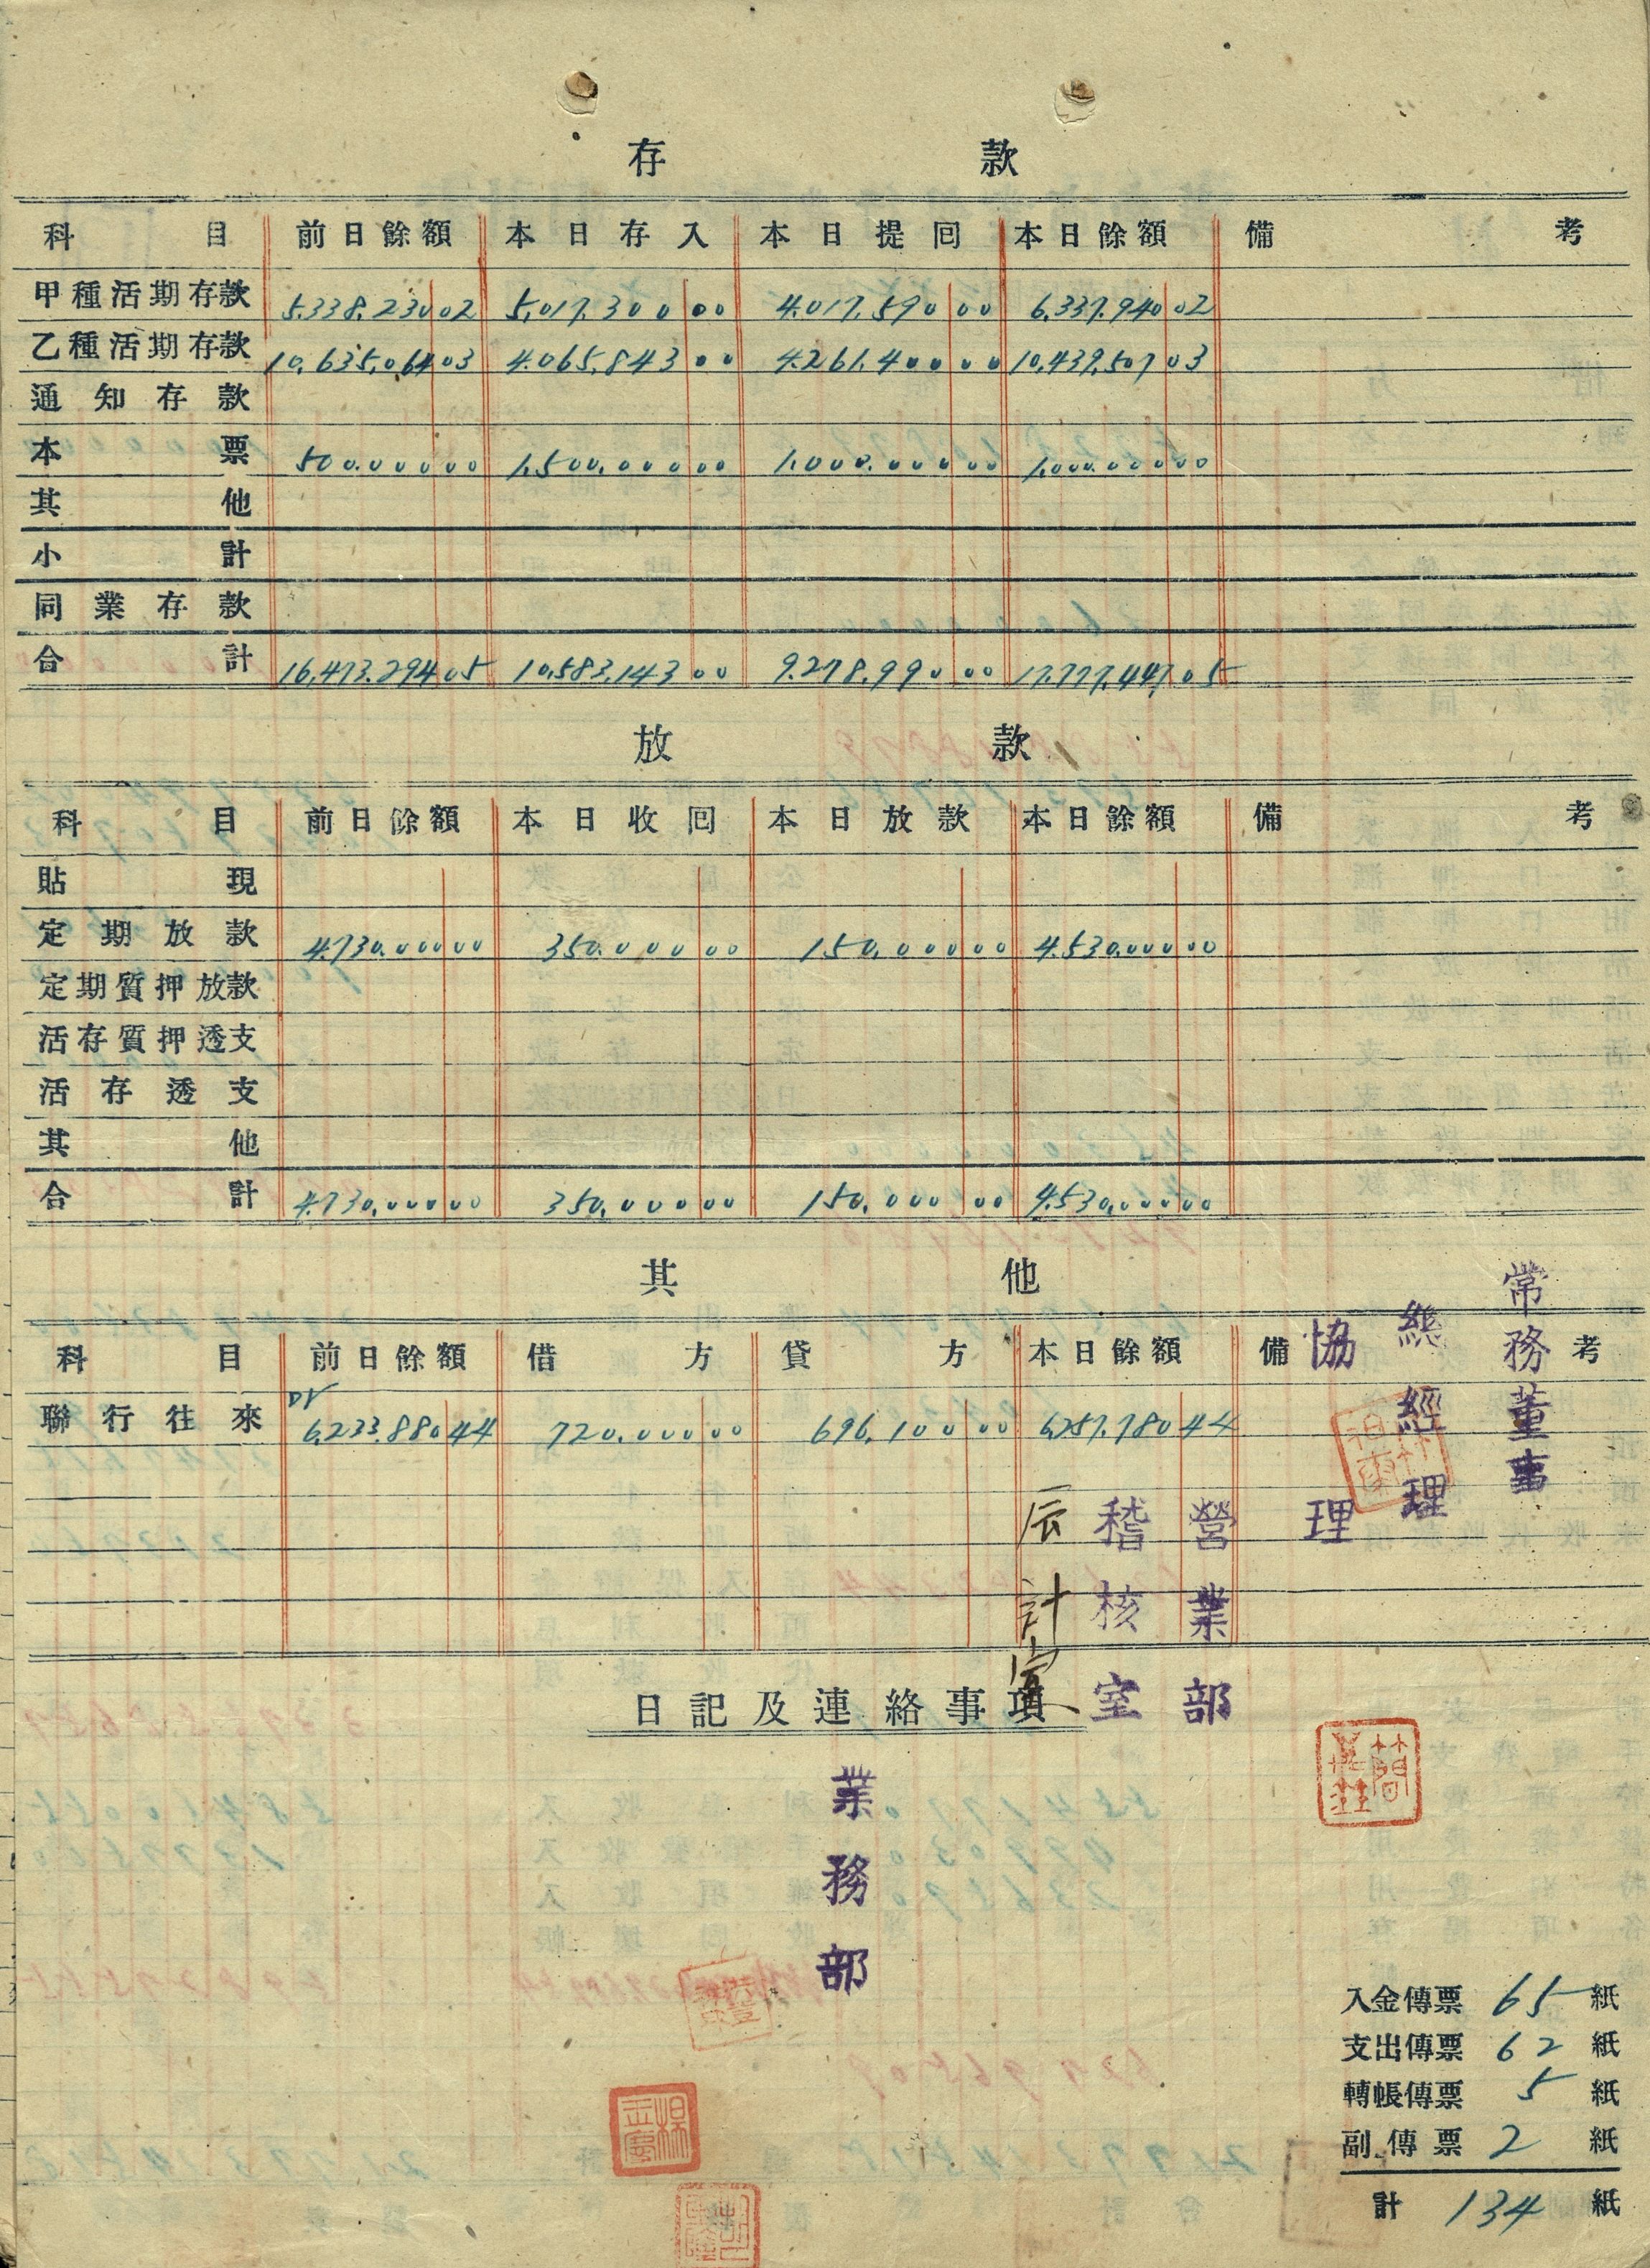 存 款
科目 前日餘額 本日存入 本日提囘 本日餘額 備考
甲種活期存款 5,338,230 02 5,017,300 00 4,017,590 00 6,337,940 02
乙種活期存款 10,635,064 03 4,065,843 00 4,261,400 00 10,439,507 03
通知存款
本票 500,000 00 1,500,000 00 1,000,000 00 1,000,000 00
其他
小計
同業存款
合計 16,473,294 05 10,583,143 00 9,278,990 00 17,777,447 05
放 款
科目 前日餘額 本日收囘 本日放款 本日餘額 備考
貼現
定期放款 4,730,000 00 350,000 00 150,000 00 4,530,000 00
定期質押放款
活存質押透支
活存透支
其他
合計 4,730,000 00 350,000 00 150,000 00 4,530,000 00
其 他
科目 前日餘額 借方 貸方 本日餘額 備考
聯行往來 Dr 6,233,880 44 720,000 00 696,100 00 6,257,780 44
常務董事
總經理
協理
營業部
稽核室
計室
日記及連絡事項
業務部
入金傳票 65 紙
支出傳票 62 紙
轉帳傳票 5 紙
副傳票 2 紙
計 134 紙